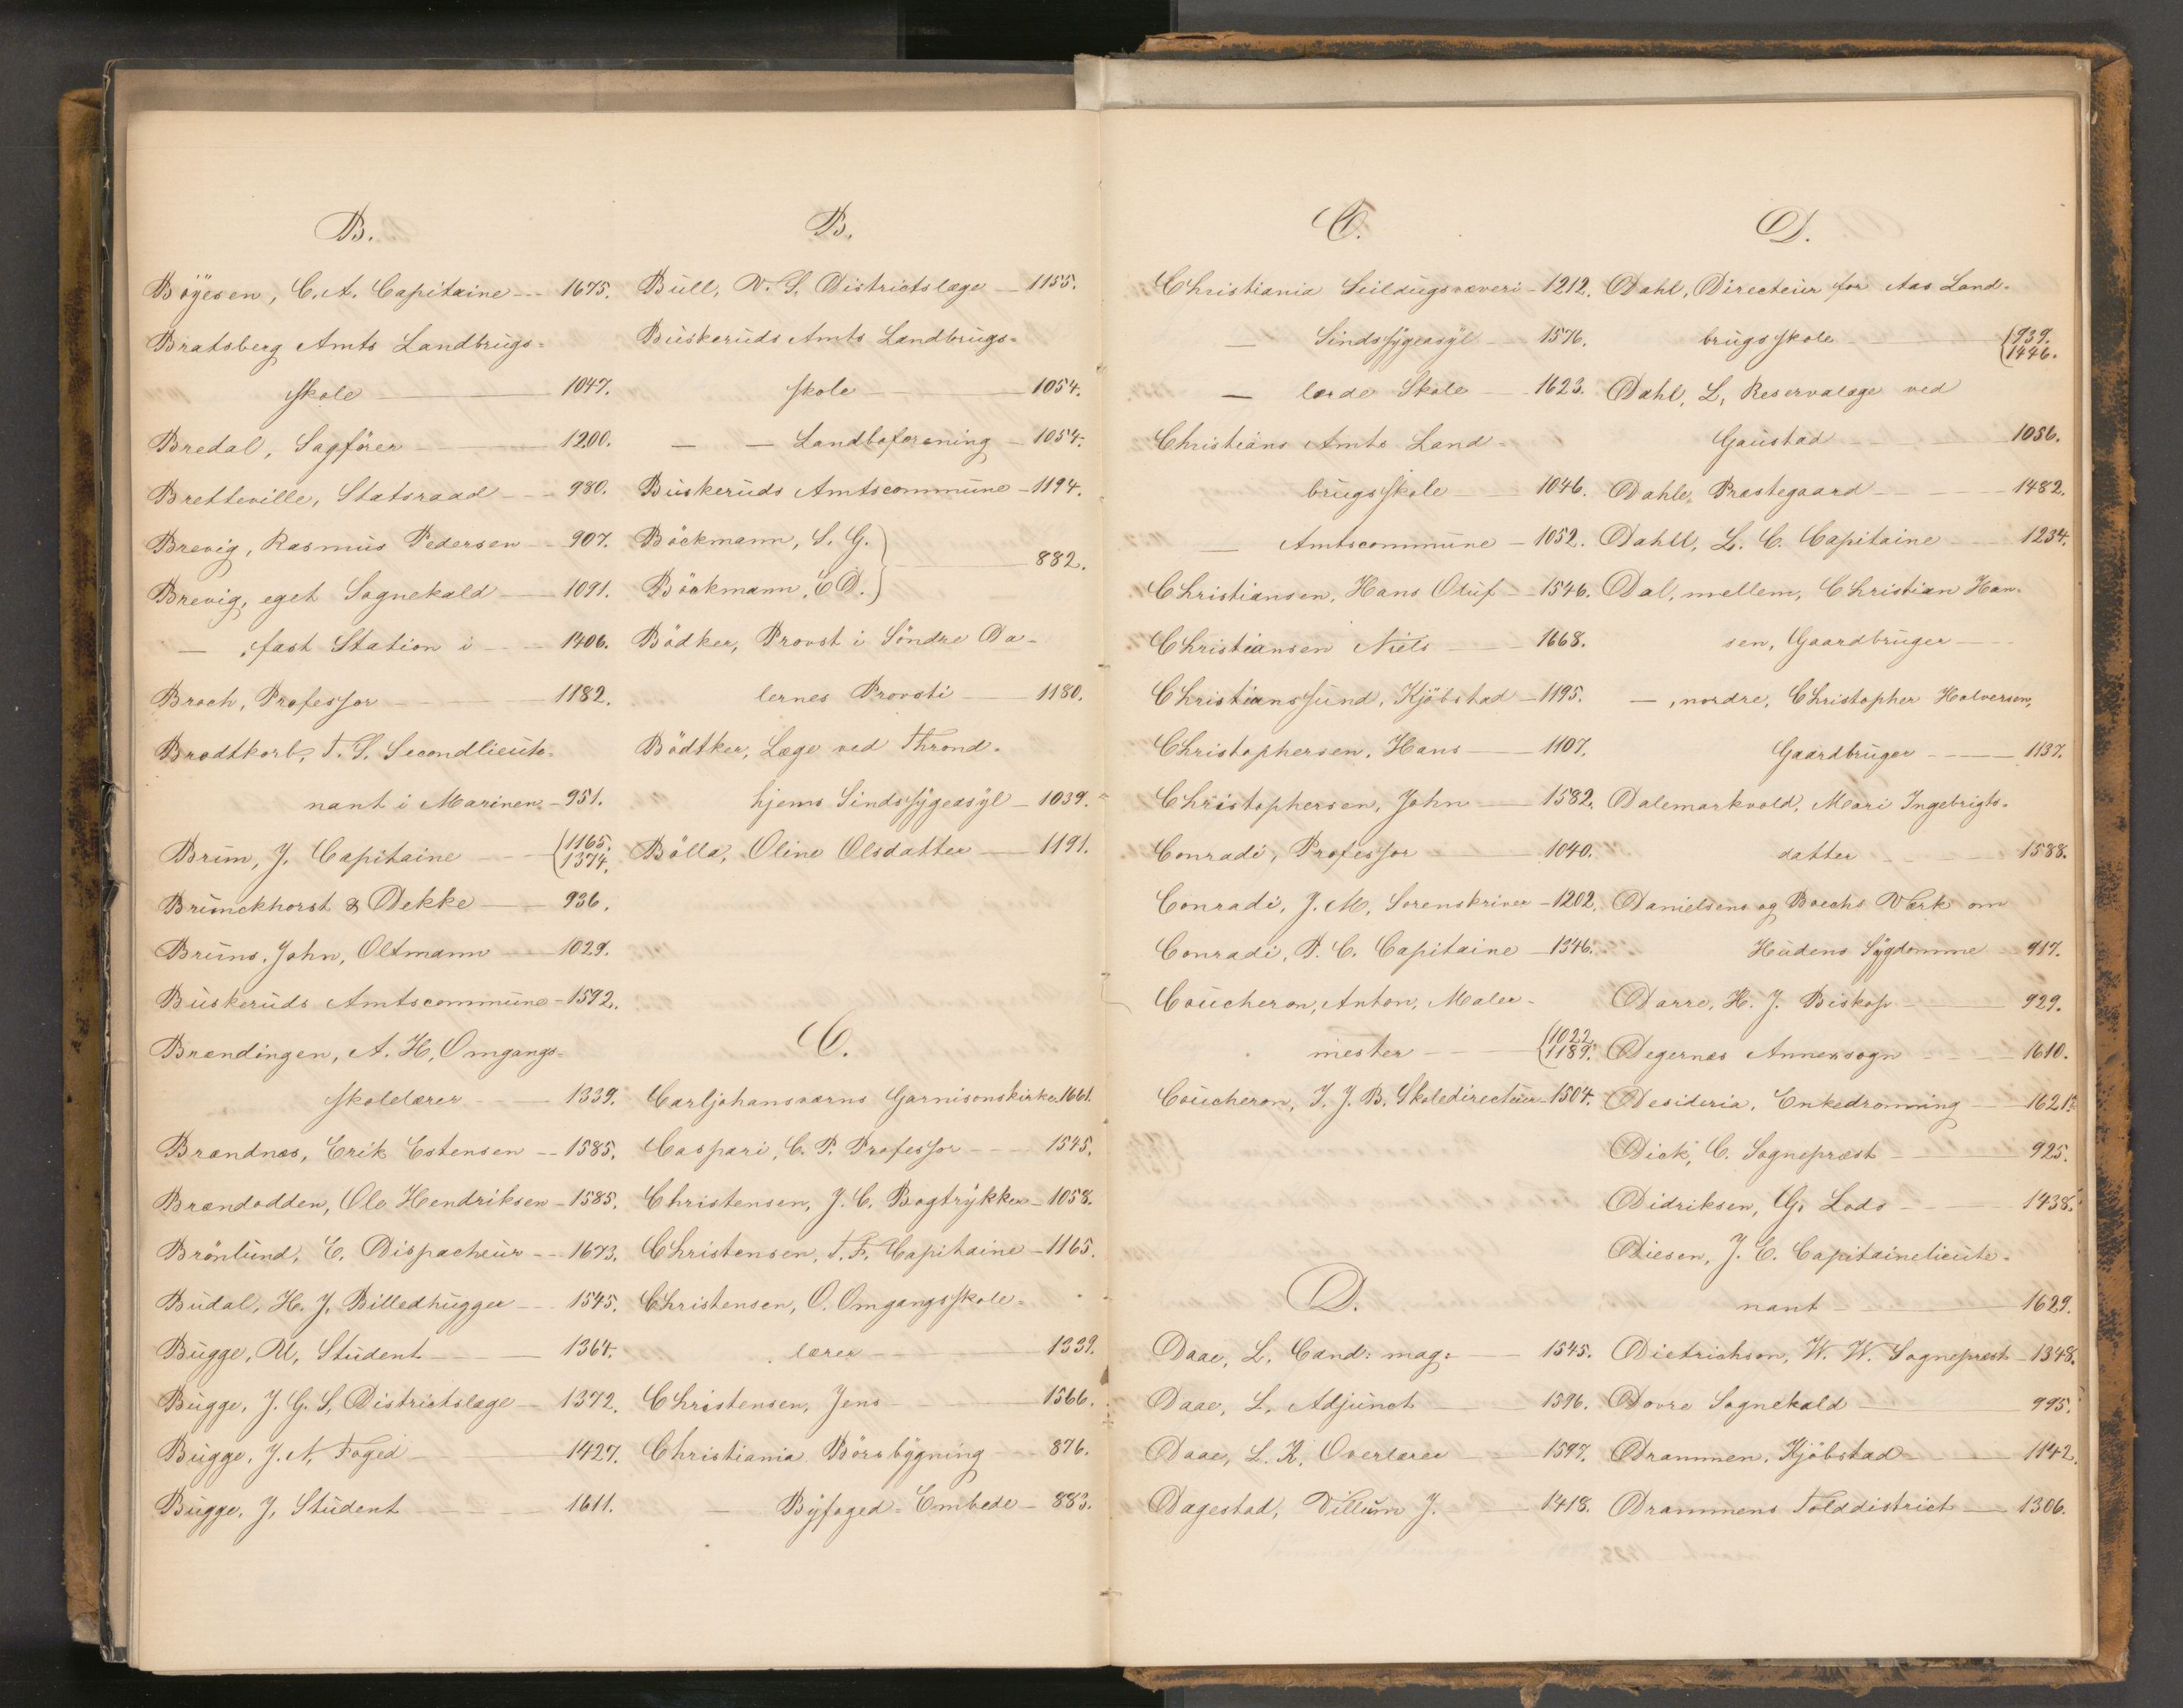 B.
Böyesen, C. A. Capitaine — 1675.
Bratsberg Amts Landbrugs-
skole — 1047.
Bredal, Sagförer — 1200.
Bretteville, Statsraad — 980.
Brevig, Rasmus Pedersen — 907.
Brevig, eget Sognekald — 1091.
— , fast Station i — 1406.
Broch, Professor — 1182.
Brodtkorb, T. S. Secondlieute-
nant i Marinen — 951.
Brun, J. Capitaine — {1165. 1374.
Brunckhorst & Dekke — 936.
Bruns, John, Oltmann — 1029.
Buskeruds Amtscommune — 1592.
Brændingen, A. H, Omgangs-
skolelærer — 1339.
Brændnes, Erik Estensen — 1585.
Brændodden, Ole Hendriksen — 1585.
Brönlund, E. Dispacheur — 1673.
Budal, H. J. Billedhugger — 1545.
Bugge, M, Student — 1364.
Bugge, J. G. S, Districtslæge — 1372.
Bugge, J. N, Foged — 1427.
Bugge, J, Student — 1611.
B.
Bull, V. S, Districtslæge — 1155.
Buskeruds Amts Landbrugs-
skole — 1054.
— — Landboforening — 1054.
Buskeruds Amtscommune — 1194.
Böckmann, S. G. }
Böckmann, E D. } — 882.
Bödker, Provst i Söndre Da-
lernes Provsti — 1180.
Bödtker, Læge ved Thrond-
hjems Sindssygeasyl — 1039.
Bölla, Oline Olsdatter — 1191.
C.
Carljohansværns Garnisonskirke 1661.
Caspari, C. P. Professor — 1545.
Christensen, J. C. Bogtrykker — 1058.
Christensen, T. F. Capitaine — 1165.
Christensen, O. Omgangsskole-
lærer — 1339.
Christensen, Jens — 1566.
Christiania Börsbygning — 876.
— Byfoged-Embede — 883.
C.
Christiania Seildugsvæveri — 1212.
— Sindssygeasyl — 1576.
— lærde Skole — 1623.
Christians Amts Land-
brugsskole — 1046.
— Amtscommune — 1052.
Christiansen, Hans Oluf — 1546.
Christiansen Niels — 1668.
Christianssund, Kjöbstad — 1195.
Christophersen, Hans — 1107.
Christophersen, John — 1582.
Conradi, Professor — 1040.
Conradi, J. M, Sorenskriver — 1202.
Conradi, P. C. Capitaine — 1346.
Coucheron, Anton, Maler-
mester — {1022. 1189.
Coucheron, I. J. B. Skoledirecteur — 1504.
D.
Daae, L, Cand: mag: — 1545.
Daae, L, Adjunct — 1596.
Daae, L. K, Overlærer — 1597.
Dagestad, Villum J. — 1418.
D.
Dahl, Directeur for Aas Land-
brugsskole — {939. 1446.
Dahl, L, Reservelæge ved
Gaustad — 1056.
Dahle, Præstegaard — 1482.
Dahll, L. C. Capitaine — 1234.
Dal, mellem, Christian Han-
sen, Gaardbruger —
— , nordre, Christopher Halversen,
Gaardbruger — 1137.
Dalemarkvold, Mari Ingebrigts-
datter — 1588.
Danielsens og Boecks Værk om
Hudens Sygdomme — 917.
Darre, H. J. Biskop — 929.
Degernes Annexsogn — 1610.
Desideria, Enkedronning — 1621½
Dick, C. Sognepræst — 925.
Didriksen, G, Lods — 1438.
Diesen, J. E. Capitainelieute-
nant — 1629.
Dietrichson, W. W. Sognepræst — 1348.
Dovre Sognekald — 995.
Drammen, Kjöbstad — 1142.
Drammens Tolddistrict — 1306.